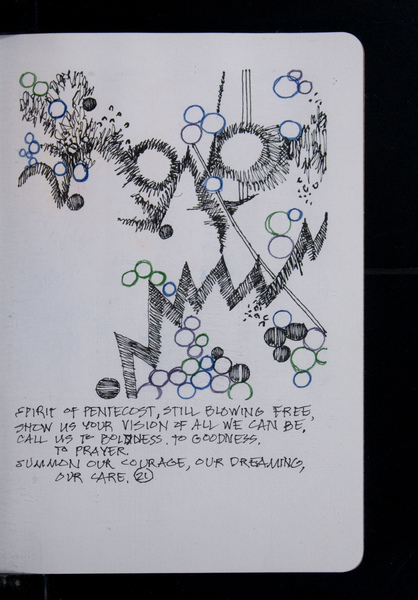 SPIRIT OF PENTECOST, STILL BLOWING FREE,
SHOW US YOUR VISION OF ALL WE CAN BE,
CALL US TO BOLDNESS. TO GOODNESS.
TO PRAYER.
SUMMON OUR COURAGE, OUR DREAMING,
OUR CARE. 21